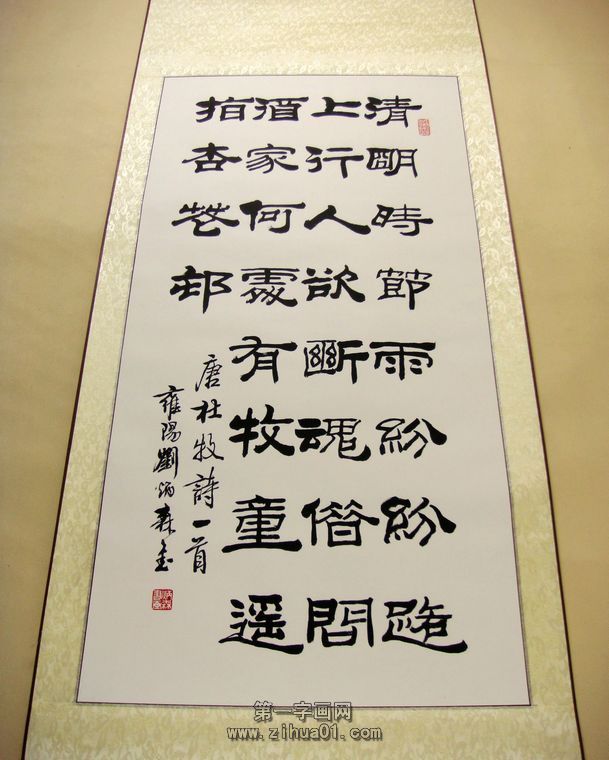 清明時節雨紛紛路
上行人欲斷魂借問
酒家何處有牧童遥
指杏花邨
唐杜牧詩一首
雍陽劉炳森書
第一字画网
www.zihua01.com